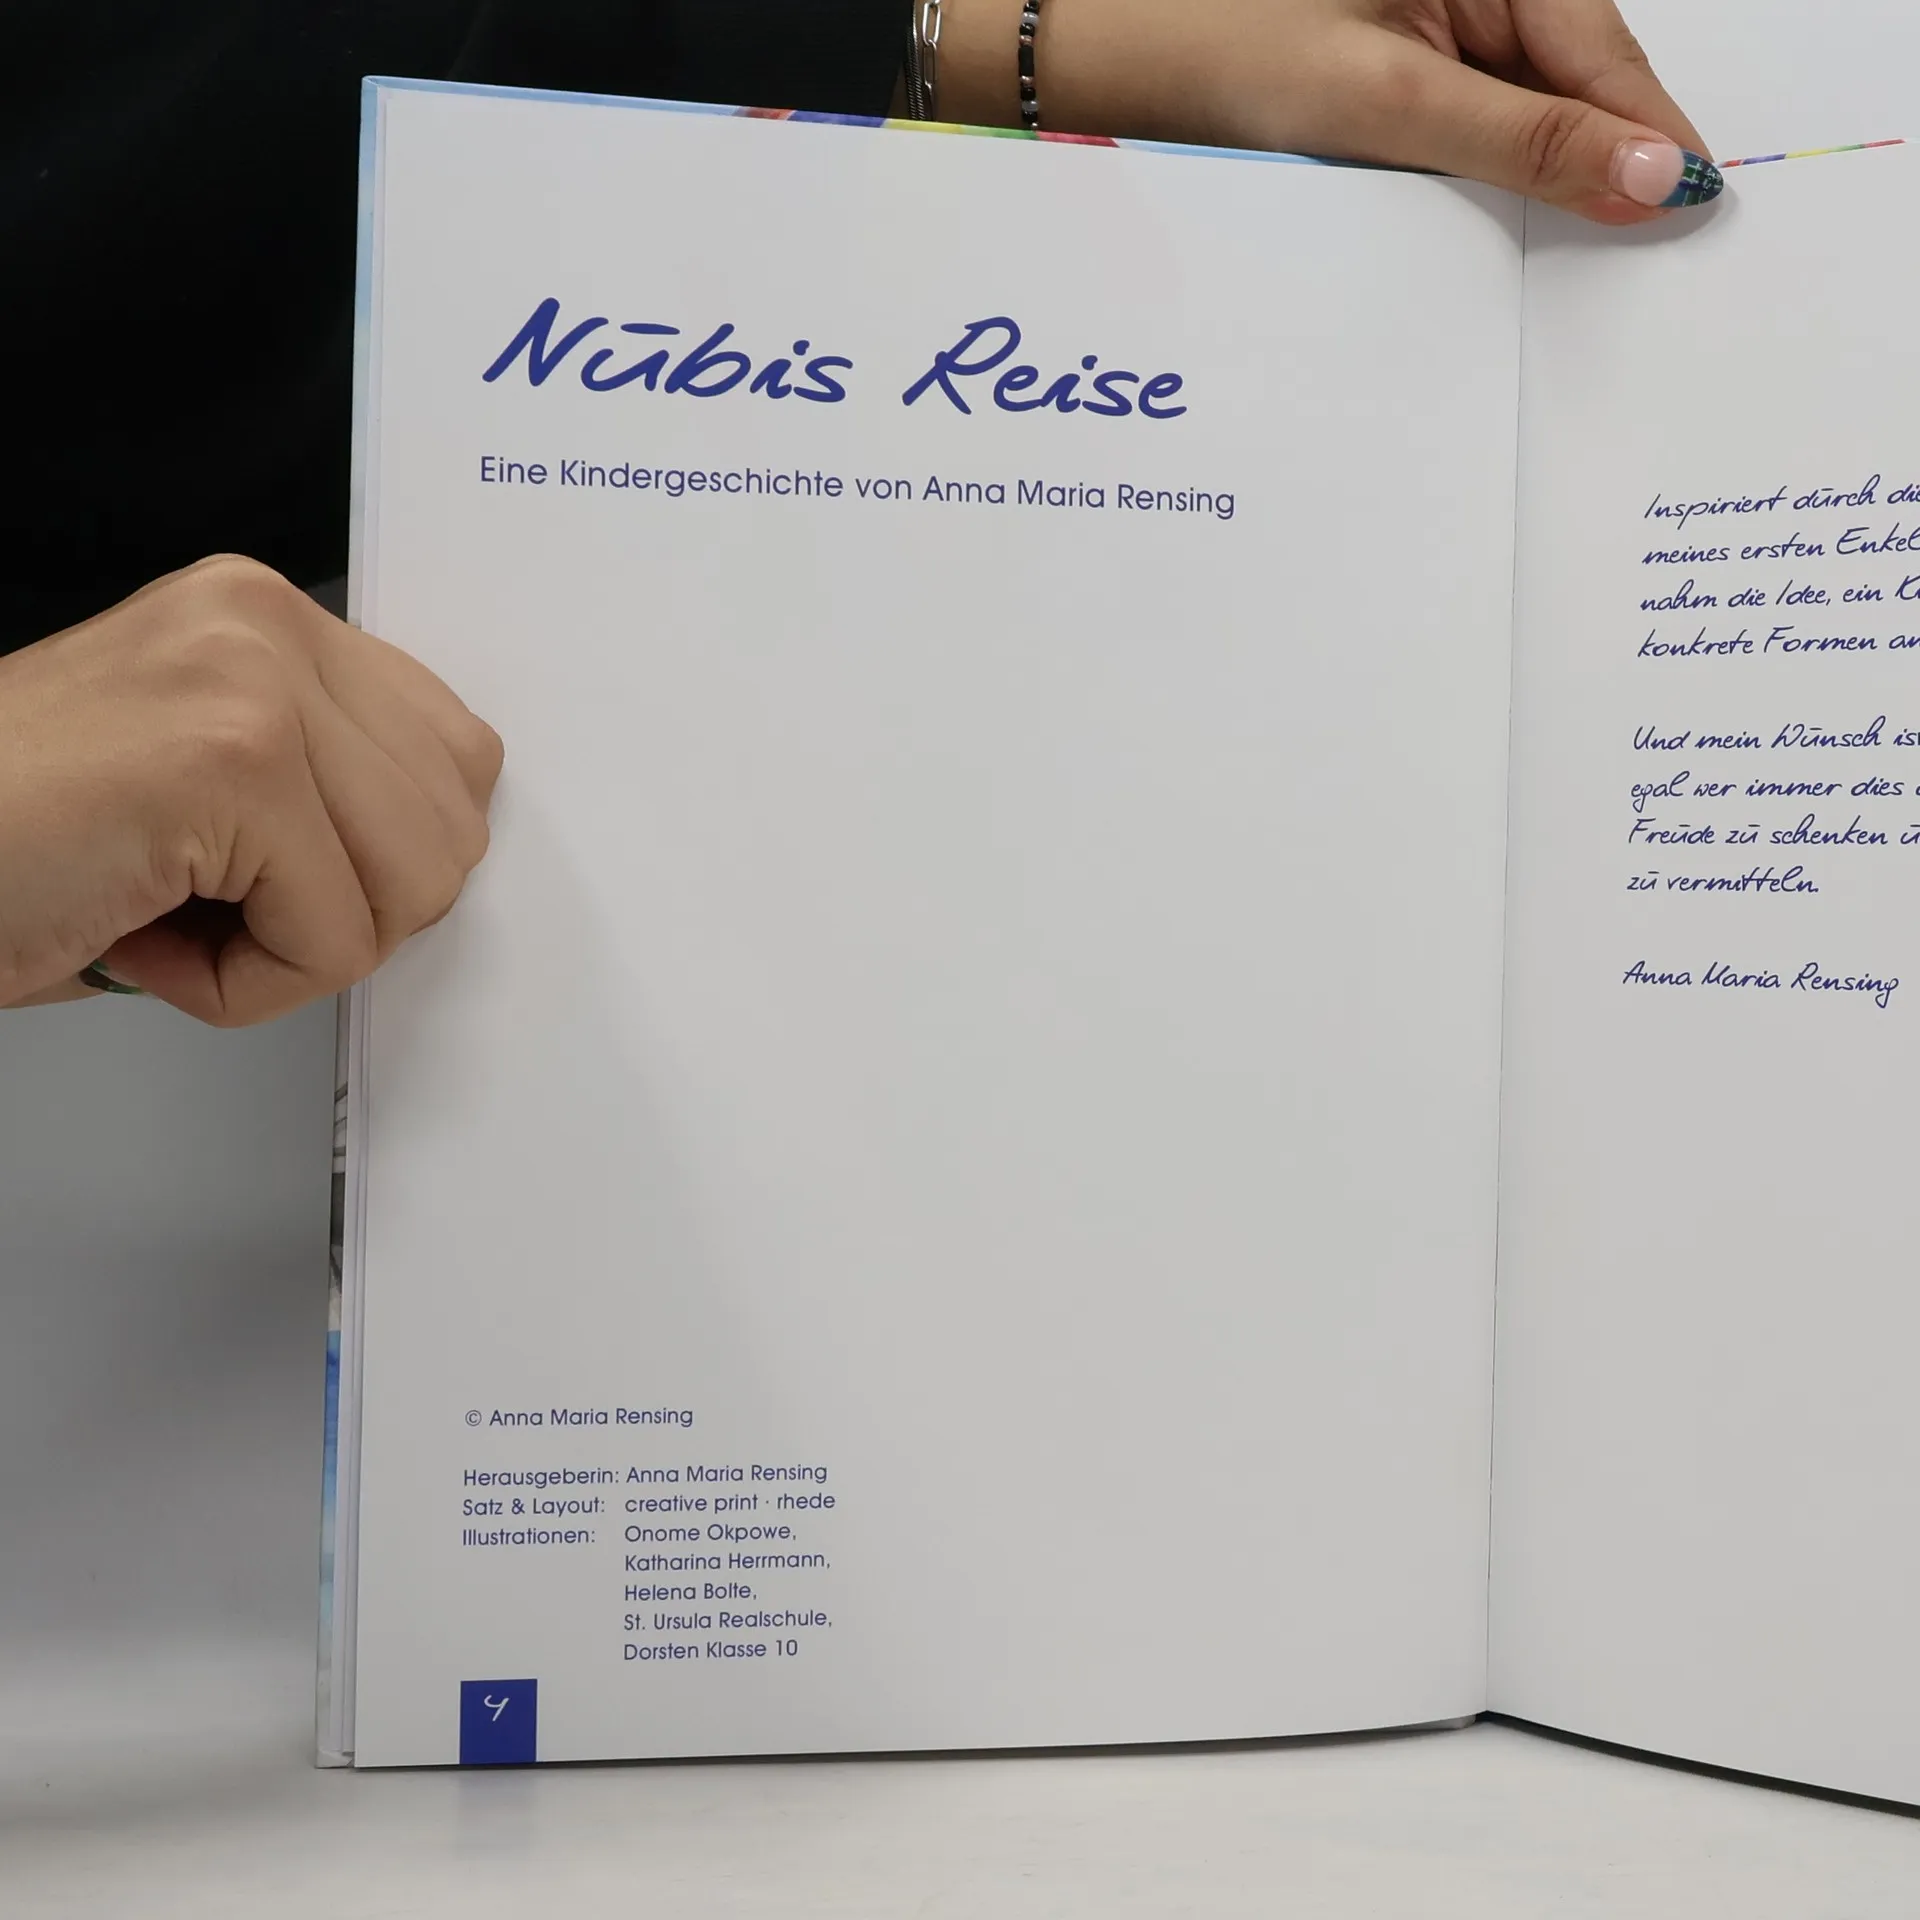 Nūbis Reise
Eine Kindergeschichte von Anna Maria Rensing
© Anna Maria Rensing
Herausgeberin: Anna Maria Rensing
Satz & Layout: creative print · rhede
Illustrationen: Onome Okpowe,
Katharina Herrmann,
Helena Bolte,
St. Ursula Realschule,
Dorsten Klasse 10
4
Inspiriert dūrch die
meines ersten
nahm die Idee, ein
konkrete Formen
Und mein Wūnsch
egal wer immer dies
Freūde zū schenken
zū vermitteln.
Anna Maria Rensing